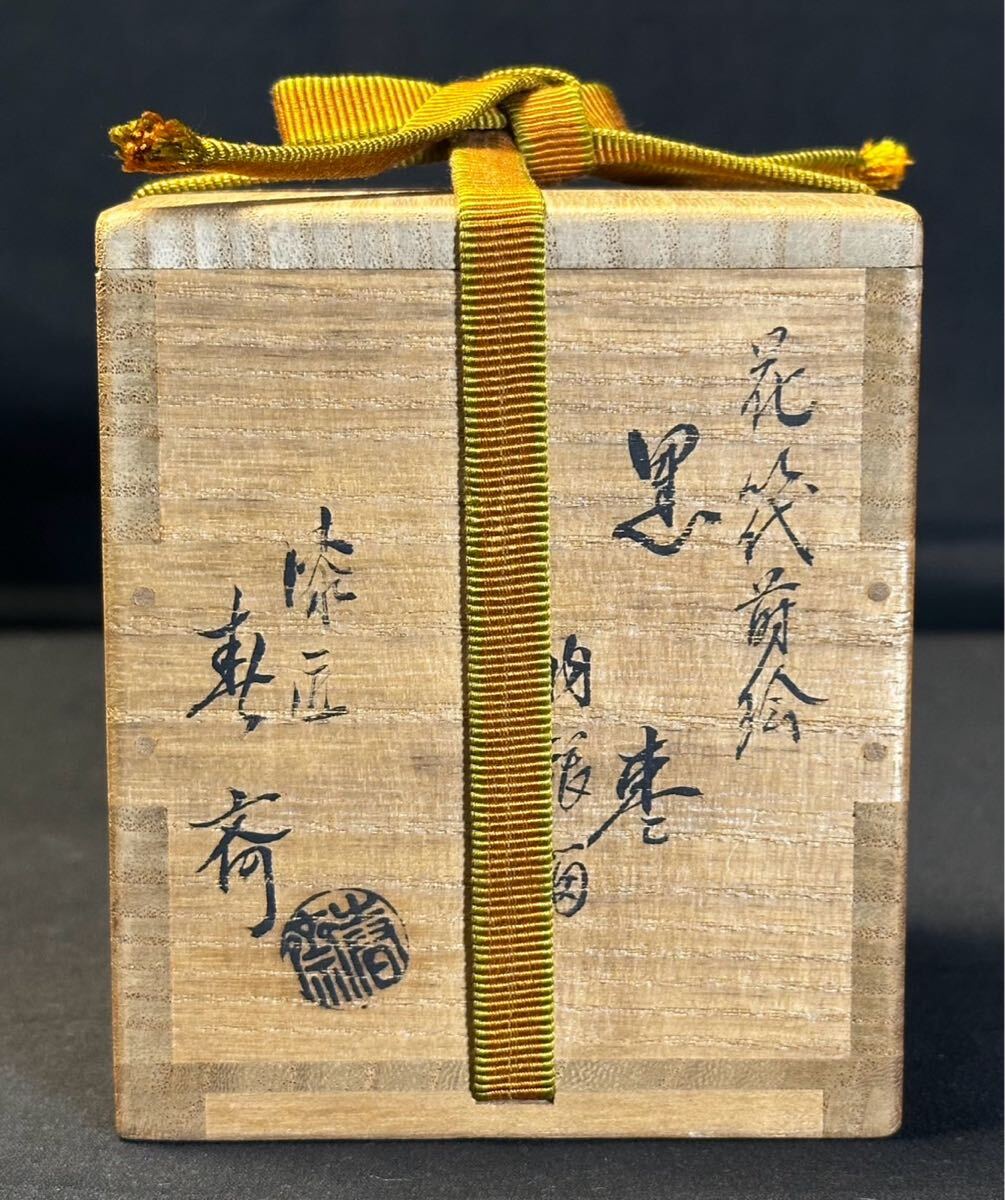 花筏蒔絵
黒棗
内銀溜
漆匠
春斎